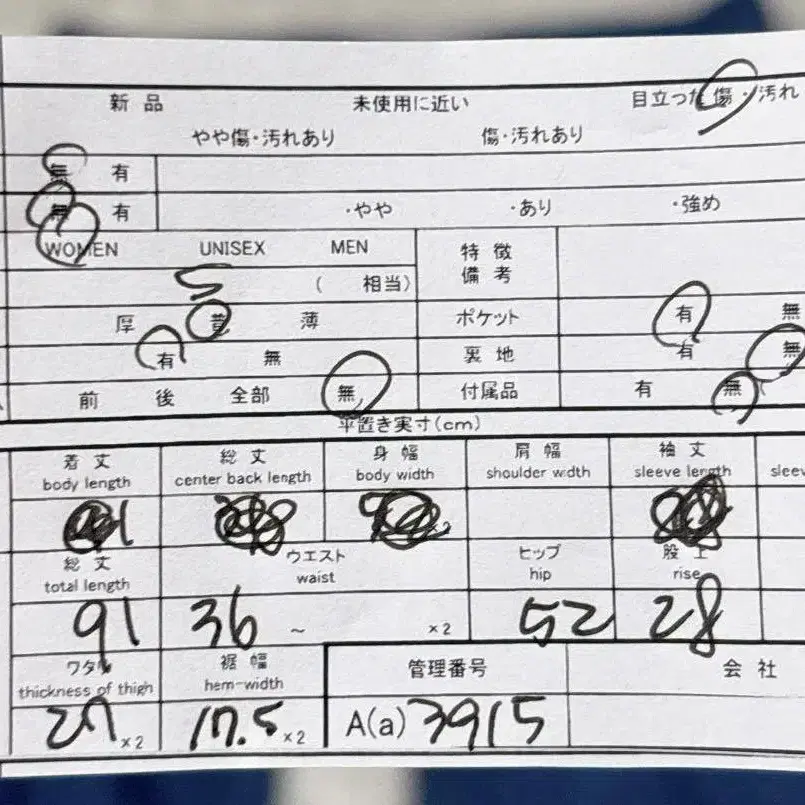 新品 未使用に近い 目立った傷・汚れ
やや傷・汚れあり 傷・汚れあり
無 有
無 有 ・やや ・あり ・強め
WOMEN UNISEX MEN 特徴
備考
( 相当)
厚 普 薄 ポケット 有 無
有 無 裏地 有 無
前 後 全部 無 付属品 有 無
平置き実寸(cm)
着丈 総丈 身幅 肩幅 袖丈
body length center back length body width shoulder width sleeve length
総丈 ウエスト ヒップ 股上
total length waist hip rise
91 36 ~ ×2 52 28
ワタリ 裾幅 管理番号 会社
thickness of thigh hem-width
27 ×2 17.5 ×2 A(a) 3915